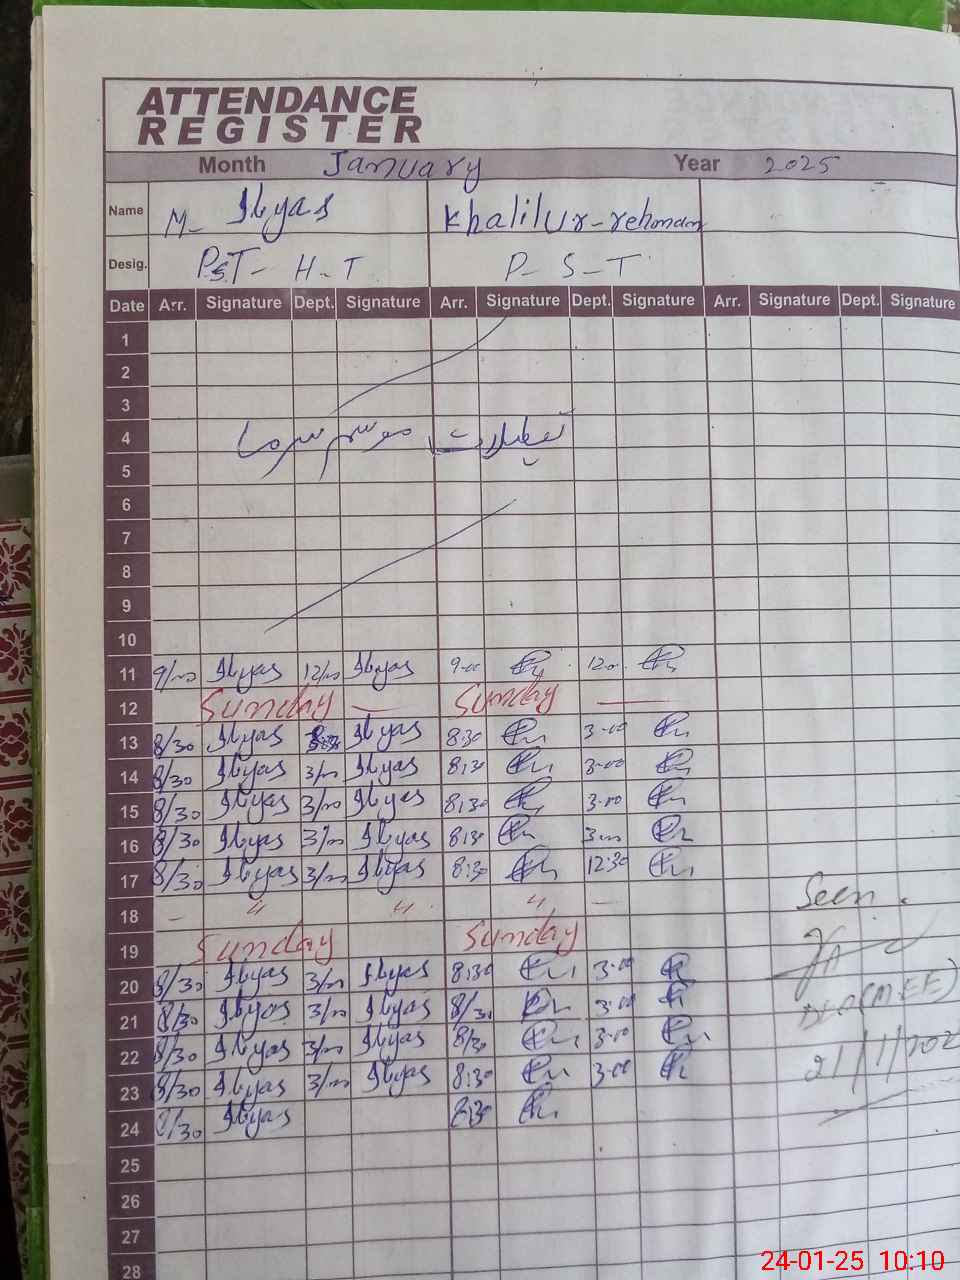 ATTENDANCE
REGISTER
Month January Year 2025
Name M- Ilyas Khalilur-rehman
Desig. PST- H-T P-S-T
Date Arr. Signature Dept. Signature Arr. Signature Dept. Signature Arr. Signature Dept. Signature
1
2
3
4 تعطیلات موسم سرما
5
6
7
8
9
10
11 9/00 Ilyas 12/00 Ilyas 9-00 12-00
12 Sunday — Sunday —
13 8/30 Ilyas Ilyas 8:30 3-00
14 8/30 Ilyas 3/00 Ilyas 8:30 3-00
15 8/30 Ilyas 3/00 Ilyas 8:30 3-00
16 8/30 Ilyas 3/00 Ilyas 8:30 3-00
17 8/30 Ilyas 3/00 Ilyas 8:30 12:30
18 – " " " –
Seen.
19 Sunday Sunday
20 8/30 Ilyas 3/00 Ilyas 8:30 3-00
21 8/30 Ilyas 3/00 Ilyas 8/30 3-00
22 8/30 Ilyas 3/00 Ilyas 8/30 3-00
23 8/30 Ilyas 3/00 Ilyas 8:30 3-00
21/1/202
24 8/30 Ilyas 8:30
25
26
27
28
24-01-25 10:10